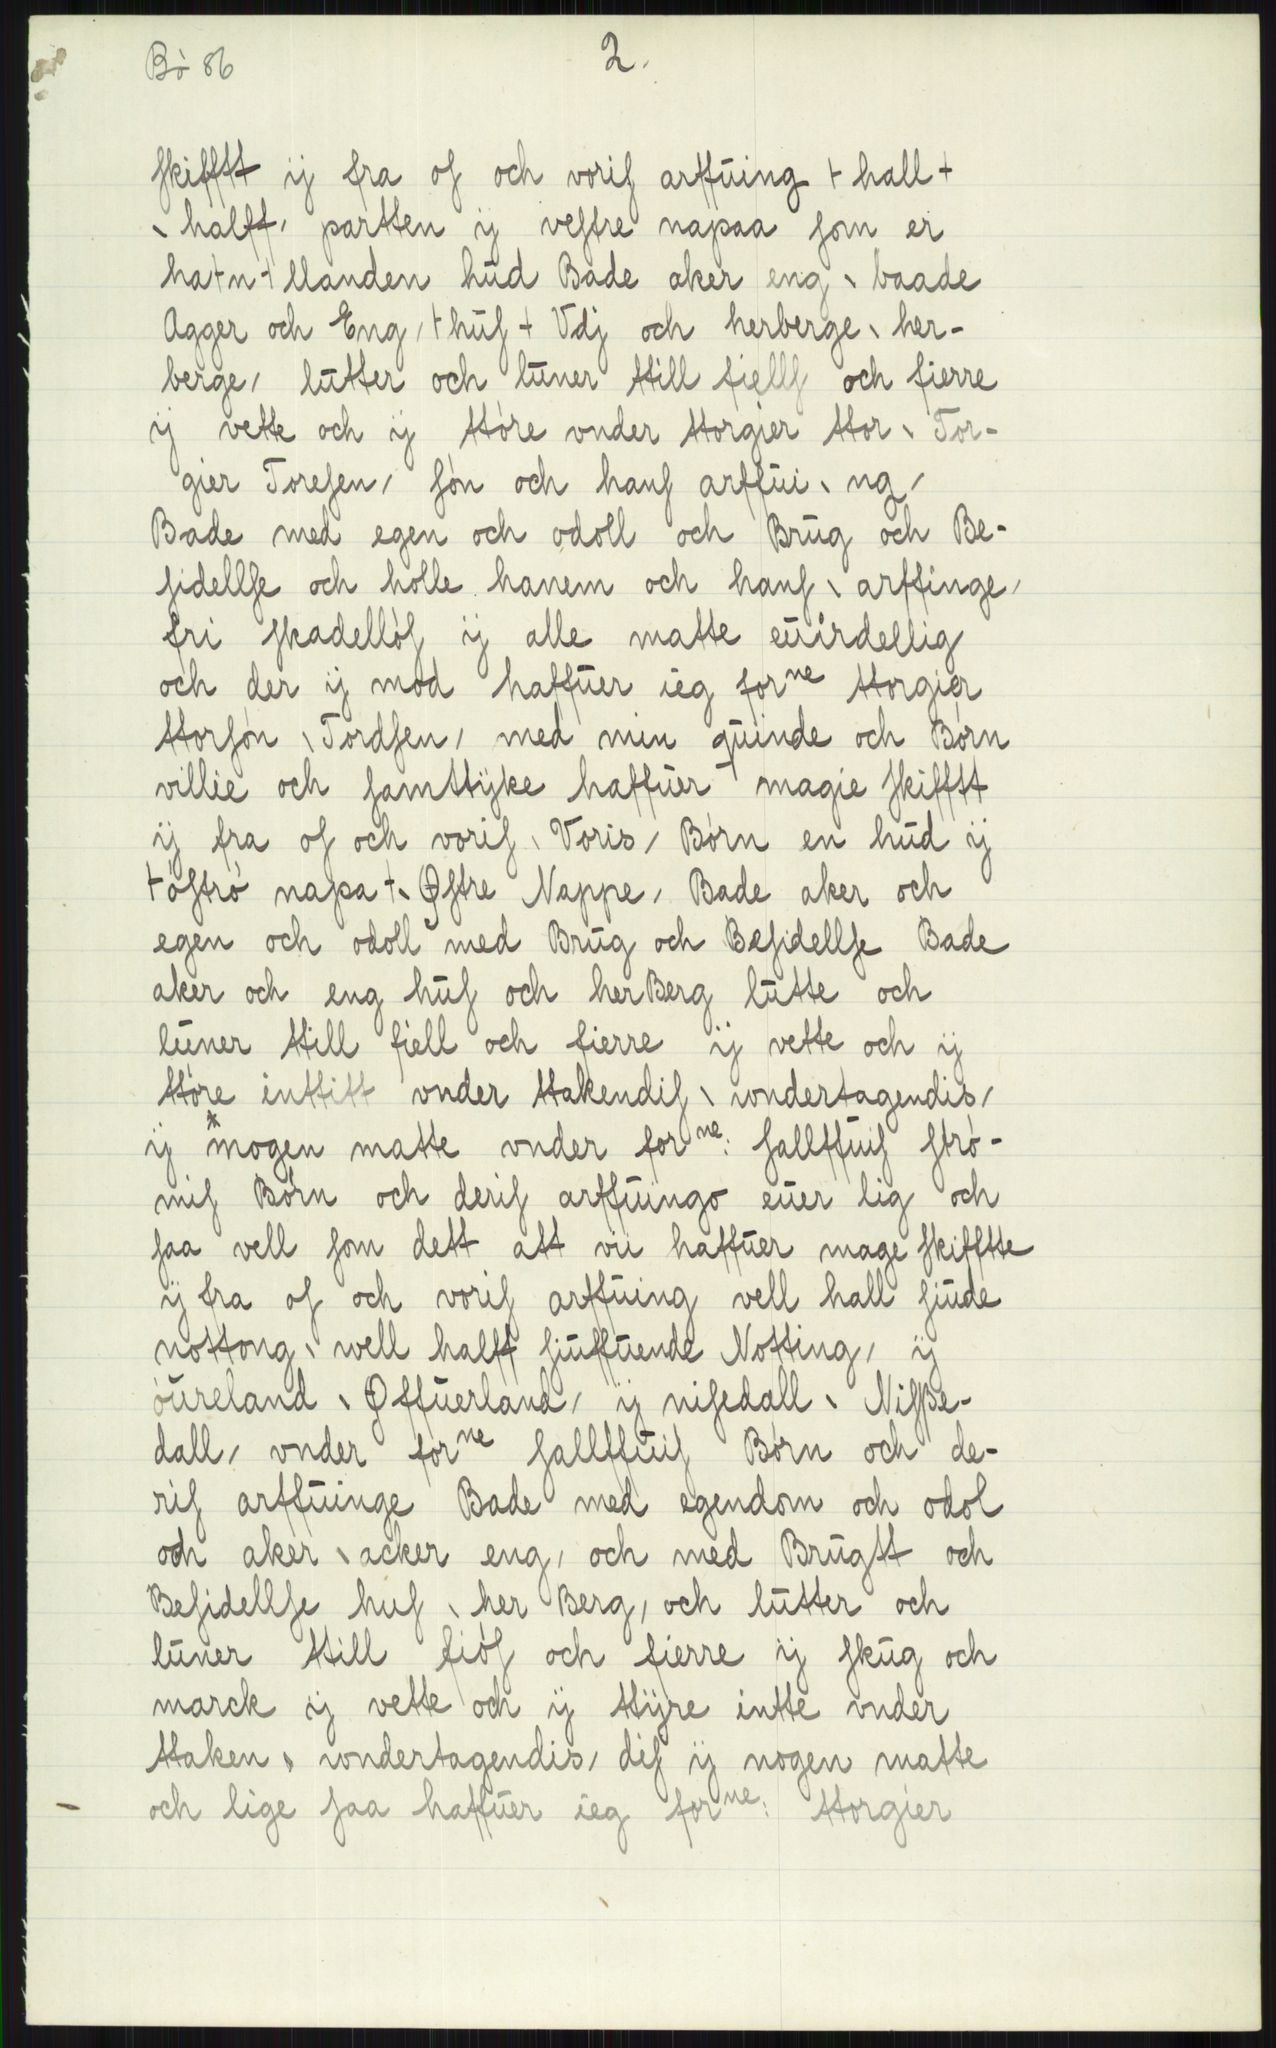 Bø 86
2.
skifftt ij fra os och voris arffuing ⸠ hall ⸡
⸜ halff⸝ partten ij vestre napaa som er
ha⸠n⸡llanden hud Bade aker eng ⸜ baade
Agger och Eng⸝ ⸠ hus ⸡ Vdj och herberge ⸜ her-
berge⸝ lutter och luner ttill fiells och fierre
ij vette och ij ttøre vnder ttorgier ttor ⸜ Tor-
gier Toresen⸝ søn och hans arffui ⸜ ng⸝
Bade med egen och odoll och Brug och Be-
sidellse och holle hanem och hans ⸜ arffinge⸝
fri skadelløs ij alle matte euirdellig
och der ij mod haffuer ieg forne ttorgier
ttorsøn ⸜ Tordsen⸝ med min quinde och Børn
villie och samttyke haffuer magie skifftt
ij fra os och voris ⸜ Voris⸝ Børn en hud ij
⸠ østrø napa ⸡ ⸜ Østre Nappe⸝ Bade aker och
egen och odoll med Brug och Besidellse Bade
aker och eng hus och herBerg lutte och
luner ttill fiell och fierre ij vette och ij
ttøre inttitt vnder ttakendis ⸜ wndertagendis⸝
ij *mogen matte vnder forne: sallffuis strø-
mis Børn och deris arffuingo euer lig och
saa vell som dett att vii haffuer mage skifftte
ij fra os och voris arffuing vell hall siude
nottong ⸜ well halff siuffuende Notting⸝ ij
øureland ⸜ Øffuerland⸝ ij nisedall ⸜ Nisße-
dall⸝ vnder forne sallffuis Børn och de-
ris arffuinge Bade med egendom och odol
och aker ⸜ acker eng⸝ och med Brugtt och
Besidellse hus ⸜ her Berg⸝ och lutter och
luner ttill fiøs och fierre ij skug och
marck ij vette och ij ttyre intte vnder
ttaken ⸜ wndertagendis⸝ dis ij nogen matte
och lige saa haffuer ieg forne: ttorgier